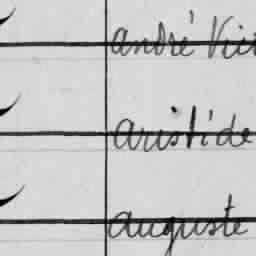 andré Vict
aristide
auguste